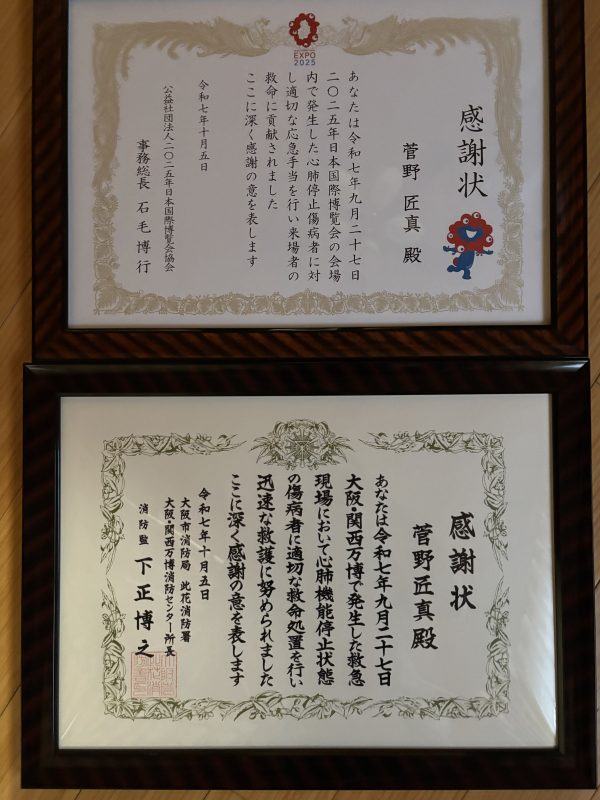 EXPO
2025
感謝状
菅野 匠真 殿
あなたは令和七年九月二十七日
二〇二五年日本国際博覧会の会場
内で発生した心肺停止傷病者に対
し適切な応急手当を行い来場者の
救命に貢献されました
ここに深く感謝の意を表します
令和七年十月五日
公益社団法人二〇二五年日本国際博覧会協会
事務総長 石毛博行
感謝状
菅野匠真殿
あなたは令和七年九月二十七日
大阪・関西万博で発生した救急
現場において心肺機能停止状態
の傷病者に適切な救命処置を行い
迅速な救護に努められました
ここに深く感謝の意を表します
令和七年十月五日
大阪市消防局 此花消防署
大阪・関西万博消防センター所長
消防監 下正博之